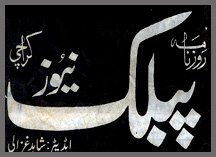 روزنامہ
پبلک نیوز کراچی
ایڈیٹر: شاہد غزالی